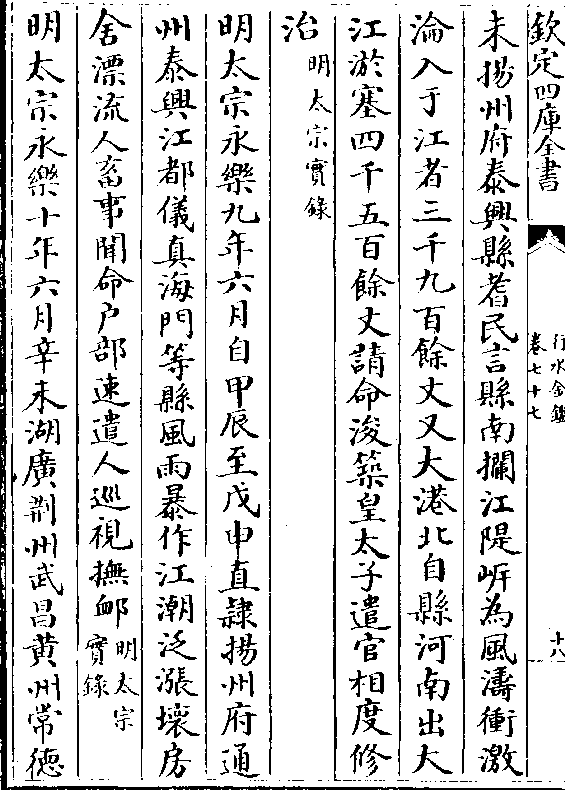 欽定四庫全書
行水金鑑
卷七十七
十八
未揚州府泰興縣耆民言縣南攔江隄岍為風濤衝激
淪入于江者三千九百餘丈又大港北自縣河南出大
江淤塞四千五百餘丈請命浚築皇太子遣官相度修
治明太宗實錄
明太宗永樂九年六月自甲辰至戊申直隸揚州府通
州泰興江都儀真海門等縣風雨暴作江潮泛漲壞房
舍漂流人畜事聞命户部速遣人巡視撫䘏明太宗
實錄
明太宗永樂十年六月辛未湖廣荆州武昌黄州常德